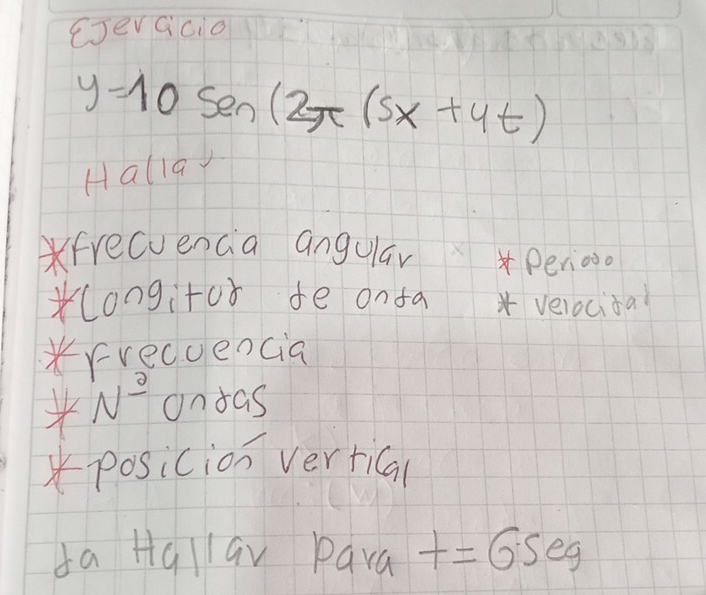 Ejercicio
y=10 Sen (2π (5x +4t)
Hallar
*Frecuencia angular
*Periodo
*Longitud de onda
*velocidad
*Frecuencia
*Nº ondas
*Posición vertical
da Hallar Para t=6seg